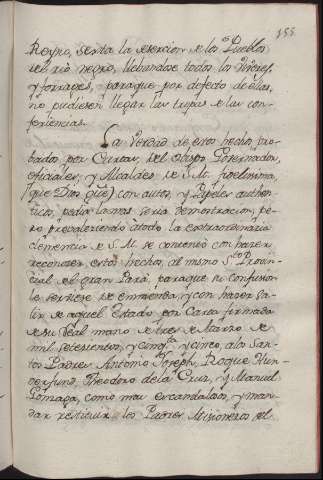 155.
Reyno, sería la desercion de los Pueblos
del rio negro, llebandose todos los víveres,
y forrages, para que por defecto de ellos,
no pudiesen llegar las tropas a las con-
ferencias.
La verdad de estos hechos pro-
bados por Cartas, del Obispo Governador,
oficiales, y Alcaldes de S. M. fidelisima,
(que Dios gûe) con autos, y Papeles authen-
ticos, pedia la mas seria demostracion, pe-
ro prevaleciendo à todo la extraordinaria
clemencia de S. M. se contentò con hazer
reconocer estos hechos, al mismo Pe. Provin-
cial del gran Parà, para que su confusion
le sirviese de enmienda, y con hazer sa-
lir de aquel Estado por Carta firmada
de su Real mano de tres de Marzo de
mil setesientos, y cinqta. y cinco, a los San-
tos Padres Antonio Joseph, Roque Hun-
derfund, Theodoro de la Cruz, y Manuel
Gonzaga, como mas escandalosos, y man-
dar restituir los Padres Misioneros del